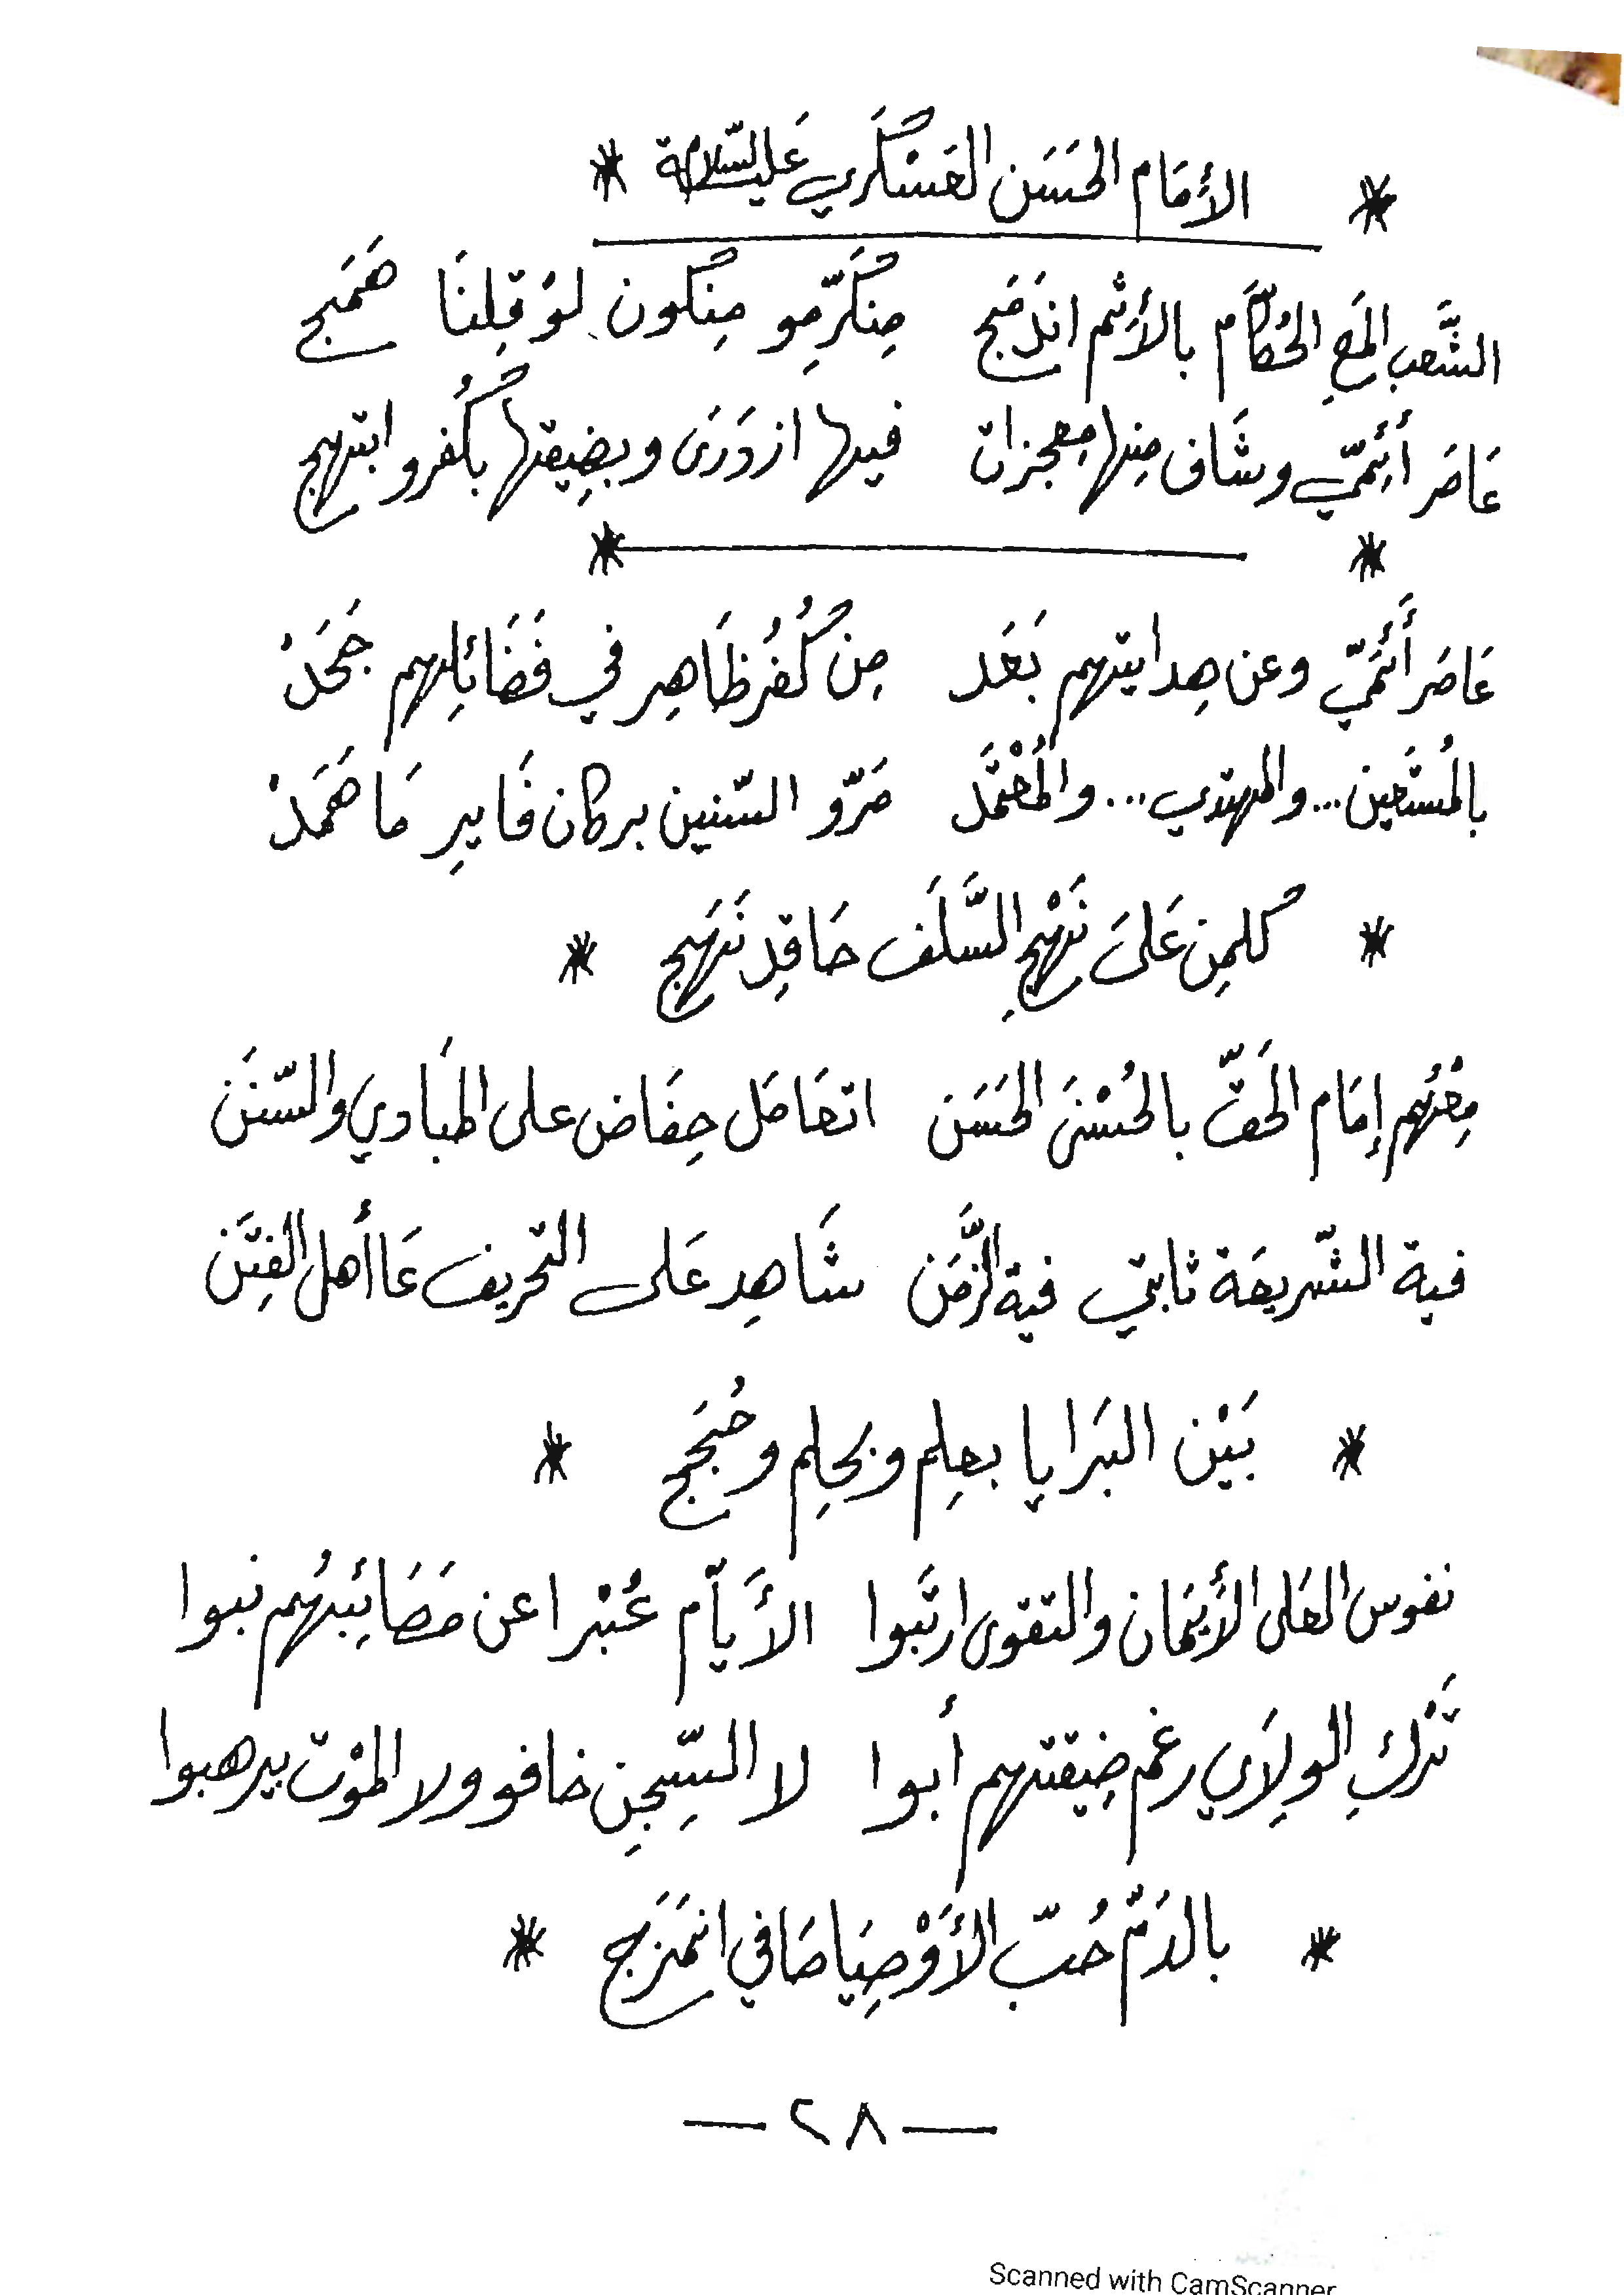 * الأمَام الحَسَن العَسْكَري عَليه السّلام *
الشَّعب المَعِ الحُكّام بالأَثم انِدَمَج مِنكَرِّمو مِنكون لوَ قِلنَا هَمَج
عَاصَر أَئِمّي وشَاف مِنها مِعجزات فيها ازدَرَى وبضِيقتها بكُفرو ابتهج
عَاصَر أَئمّي وعن هِدايتهم بَعَد مِن كُفُر ظَاهِر في فَضَائِلهم جَحَدْ
بالمُستَعين... والمهتدي... والمُعْتَمَد مَرّو السّنين بركان فَايرِ مَا هَمَدْ
* كلمِن عَلىَ نَهْجِ السَّلَف حَاقِد نَهَج *
مِعْهُم إمَام الحَقّ بالحُسْنَى الحَسَن اتعَامَل حِفَاض على المبَادي والسّنَن
فية الشّريعَة ثابتي فية الزَّمَن شَاهِد عَلى التحريف عَا أهل الفِتَن
* بَيْن البَرايا بعِلم وبحِلِم وحُجَج *
نفوس العَلى الأَيمَان والتقوى ارتَبوا الأَيّام عُبْرا عن مَصَائِبهُم نبوا
تَرْكِ الولِاَي رغم ضِيقتهم أبوا لا السِّجِن خافو ولا المْوَت يرهبوا
* بالدَمّ حُبّ الأَوْصِيَا صَافي انمَزَج *
— ٢٨ —
Scanned with CamScanner